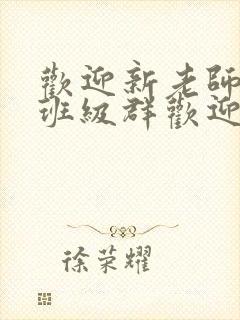 歡迎新老師
班級群歡迎
徐荣耀